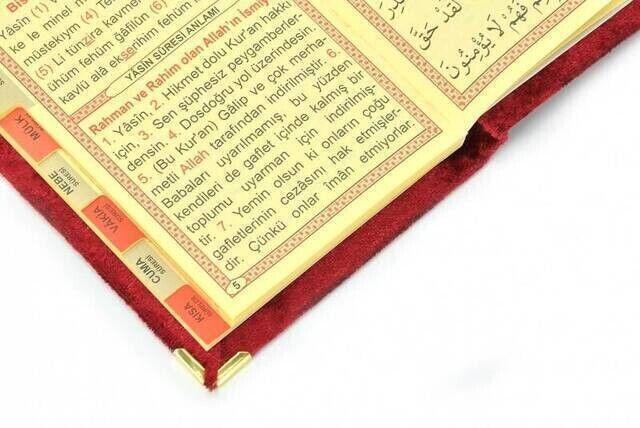 Yâsîn (1)
ke le minel
müstekıym (4)
(5) Li tünzira kavmen
ühüm fehüm gâfilûn (6)
kavlü alâ ekserihim fehüm
YÂSÎN SÛRESİ ANLAMI
Rahman ve Rahîm olan Allah'ın İsmiy
1. Yâsîn, 2. Hikmet dolu Kur'an hakkı
için, 3. Sen şüphesiz peygamberler-
densin. 4. Dosdoğru yol üzerindesin.
5. (Bu Kur'an) Gâlip ve çok merha-
metli Allah tarafından indirilmiştir. 6.
Babaları uyarılmamış, bu yüzden
kendileri de gaflet içinde kalmış bir
toplumu uyarman için indirilmiş-
tir. 7. Yemin olsun ki onların çoğu
gafletlerinin cezâsını hak etmişler-
dir. Çünkü onlar îmân etmiyorlar.
5
لَقَدْ حَقَّ
فَهُمْ لَا يُؤْمِنُونَ
MÜLK
NEBE
SÛRESİ
VÂKIA
SÛRESİ
CUMA
SÛRESİ
KISA
SÛRELER